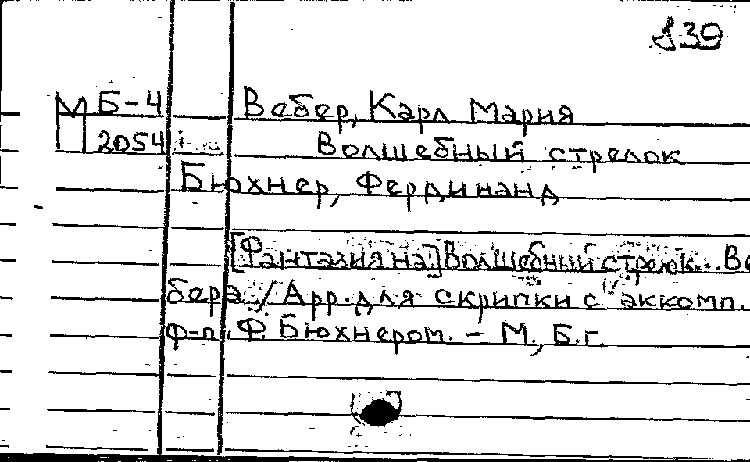 139
М Б-4 Вебер, Карл Мария
2054 Волшебный стрелок
Бюхнер, Фердинанд
[Фантазия на] Волшебный стрелок... Ве
бера / Арр. для скрипки с аккомп.
ф-п. Ф. Бюхнером. - М., Б.г.